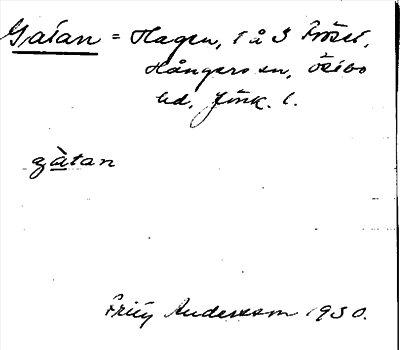 Gatan = Hagen, 1 å 3 Fröset,
Hångers sn, Östbo
hd, Jönk. l.
gàtan
Andersson 1930.